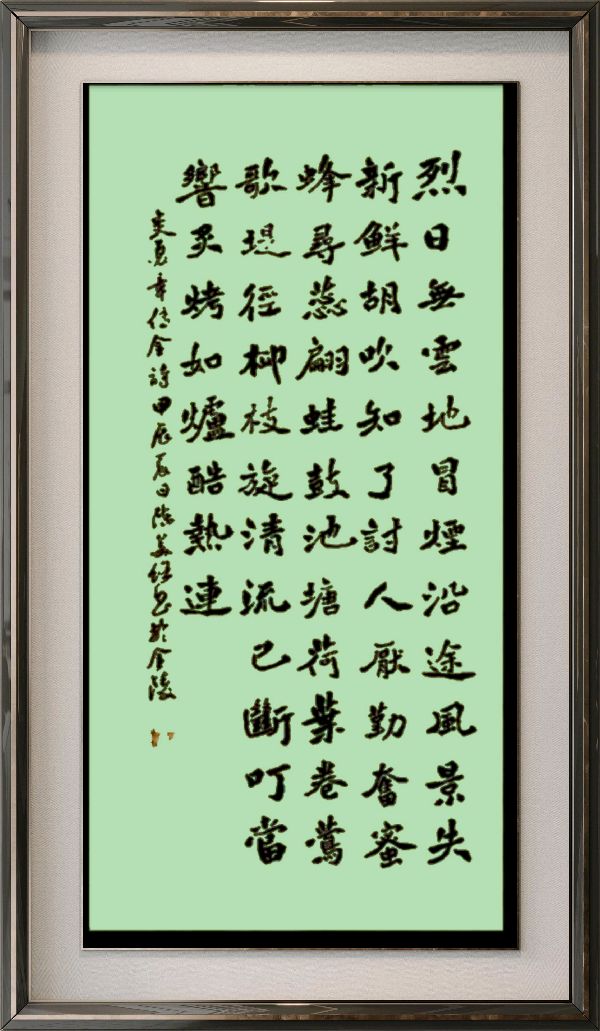 烈日無雲地冒煙沿途風景失
新鮮胡吹知了討人厭勤奮蜜
蜂尋蕊翩蛙鼓池塘荷葉卷鶯
歌堤徑柳枝旋清流已斷叮當
響炙烤如爐酷熱連
炎夏韋傳金詩甲辰夏日陈於金陵